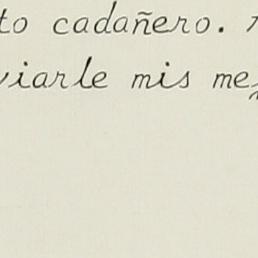 to cadañero.
viarle mis me